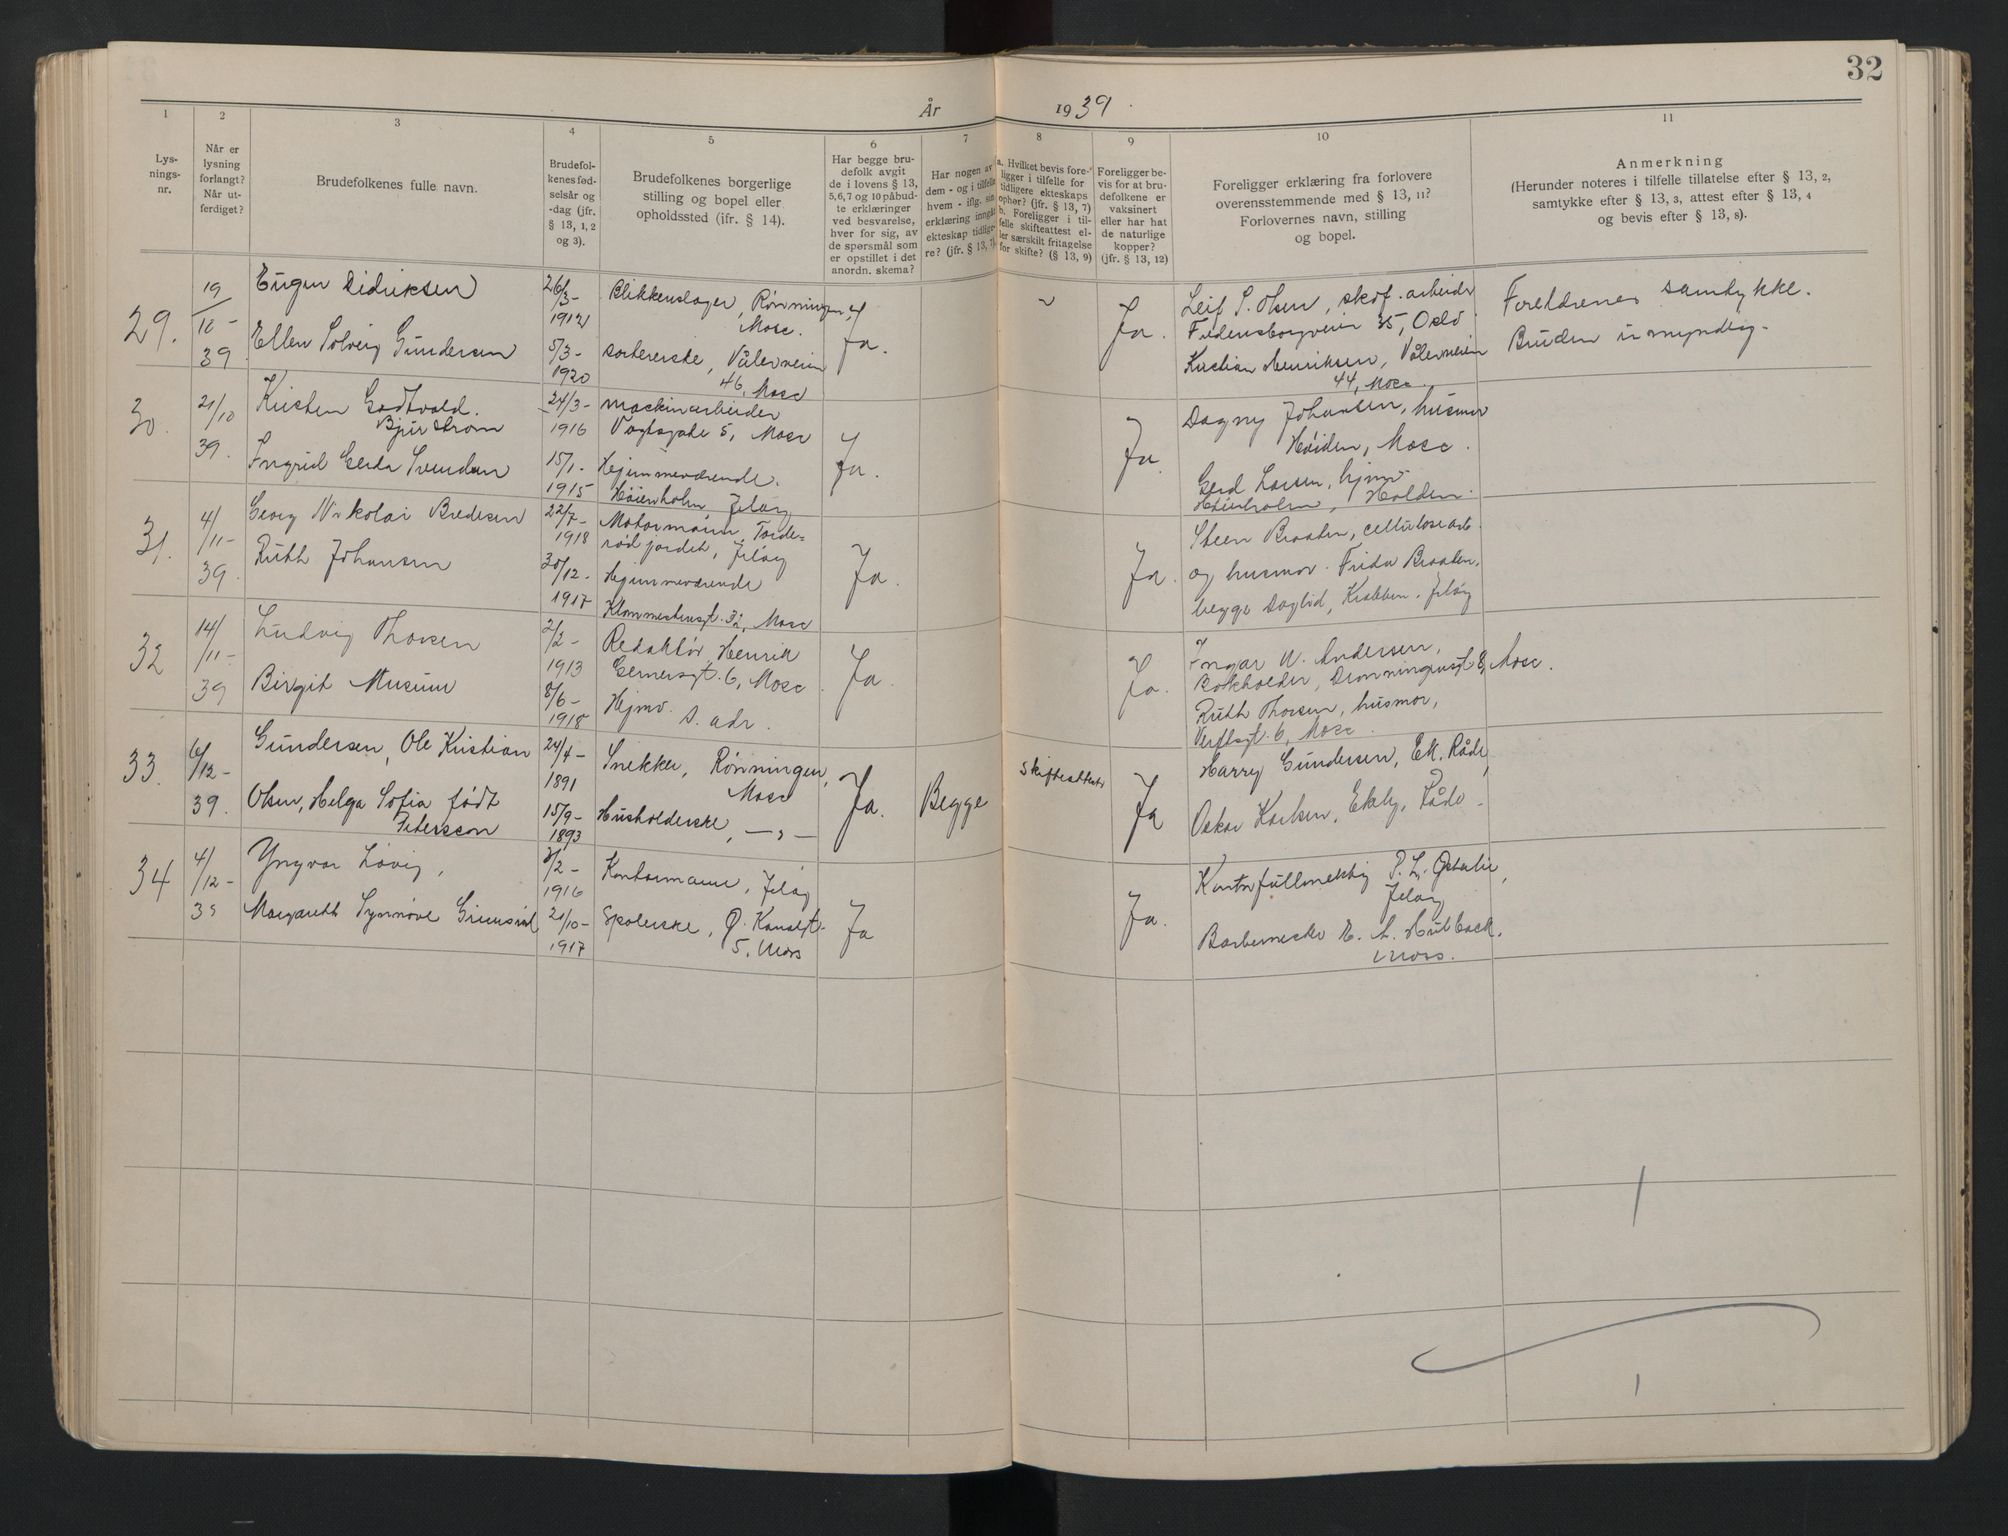 32
År 1939.
1
Lys-
nings-
nr.
2
Når er
lysning
forlangt?
Når ut-
ferdiget?
3
Brudefolkenes fulle navn.
4
Brudefol-
kenes fød-
selsår og
-dag (jfr.
§ 13, 1, 2
og 3).
5
Brudefolkenes borgerlige
stilling og bopel eller
opholdssted (ifr. § 14).
6
Har begge bru-
defolk avgit
de i lovens § 13,
5, 6, 7 og 10 påbud-
te erklæringer
ved besvarelse,
hver for sig, av
de spørsmål som
er opstillet i det
anordn. skema?
7
Har nogen av
dem - og i tilfelle
hvem - iflg. sin
erklæring inngått
ekteskap tidlige-
re? (jfr. § 13, 7).
8
a. Hvilket bevis fore-
ligger i tilfelle for
tidligere ekteskaps
ophør? (jfr. § 13, 7)
b. Foreligger i til-
felle skifteattest el-
ler særskilt fritagelse
for skifte? (§ 13, 9)
9
Foreligger be-
vis for at bru-
defolkene er
vaksinert
eller har hat
de naturlige
kopper?
(jfr. § 13, 12)
10
Foreligger erklæring fra forlovere
overensstemmende med § 13, 11?
Forlovernes navn, stilling
og bopel.
11
Anmerkning
(Herunder noteres i tilfelle tillatelse efter § 13, 2,
samtykke efter § 13, 3, attest efter § 13, 4
og bevis efter § 13, 8).
29.
19/
10-
39
Eugen Didriksen
Ellen Solveig Gundersen
26/3-
1912
5/3-
1920
Blikkenslager, Rønningen,
Moss.
sortererske, Vålerveien
46, Moss
Ja.
Ja.
Leif S. Olsen, skof. arbeider
Fredensborgveien 35, Oslo
Kristian Henriksen, Vålerveien
44, Moss.
Foreldrenes samtykke.
Bruden umyndig.
30.
21/10
39.
Kristen Godtvald
Bjurstrøm
Ingrid Gerda Svendsen
24/3-
1916
15/1-
1915
maskinarbeider
Vogtsgate 5, Moss
Hjemmeværende.
Høienholm, Jeløy
Ja.
Ja.
Dagny Johansen, husmor
Høiden, Moss.
Gerd Larsen, hjmv
Høienholm, Holden.
31.
4/
11-
39.
Georg Nikolai Bredesen
Ruth Johansen
22/7-
1918
30/12-
1917
Motormann, Torde-
rød jordet, Jeløy
Hjemmeværende
Ja.
Ja.
Steen Braaten, cellulosearb.
og husmor Frida Braaten,
begge Daglid, Krabben. Jeløy
32
14/
11-
39
Ludvig Thorsen
Birgit Musum
2/2-
1913
8/6-
1918
Redaktør, Henrik
Gernersgt. 6, Moss
Hjmv. s. adr.
Ja.
Ja.
Ingar W. Andersen,
Bokholder, Dronningensgt 8, Moss.
Ruth Thorsen, husmor,
Verftsgt. 6, Moss.
33.
6/12-
39.
Gundersen, Ole Kristian
Olsen, Helga Sofia født
Petersson
24/4-
1891
15/9-
1893
Snekker, Rønningen,
Moss
Husholderske, —„—
Ja.
Begge
Skifteattest
Ja
Harry Gundersen, Ek, Råde,
Oskar Karlsen, Ekely, Råde.
34
4/
12-
39
Yngvar Løvig,
Margareth Synnøve
2/2-
1916
21/10-
1917
Kontormann, Jeløy
Spolerske, Ø. Kanalgt.
5, Moss
Ja
Ja.
Kontorfullmektig P. L.
Jeløy
Barbermester
Moss.